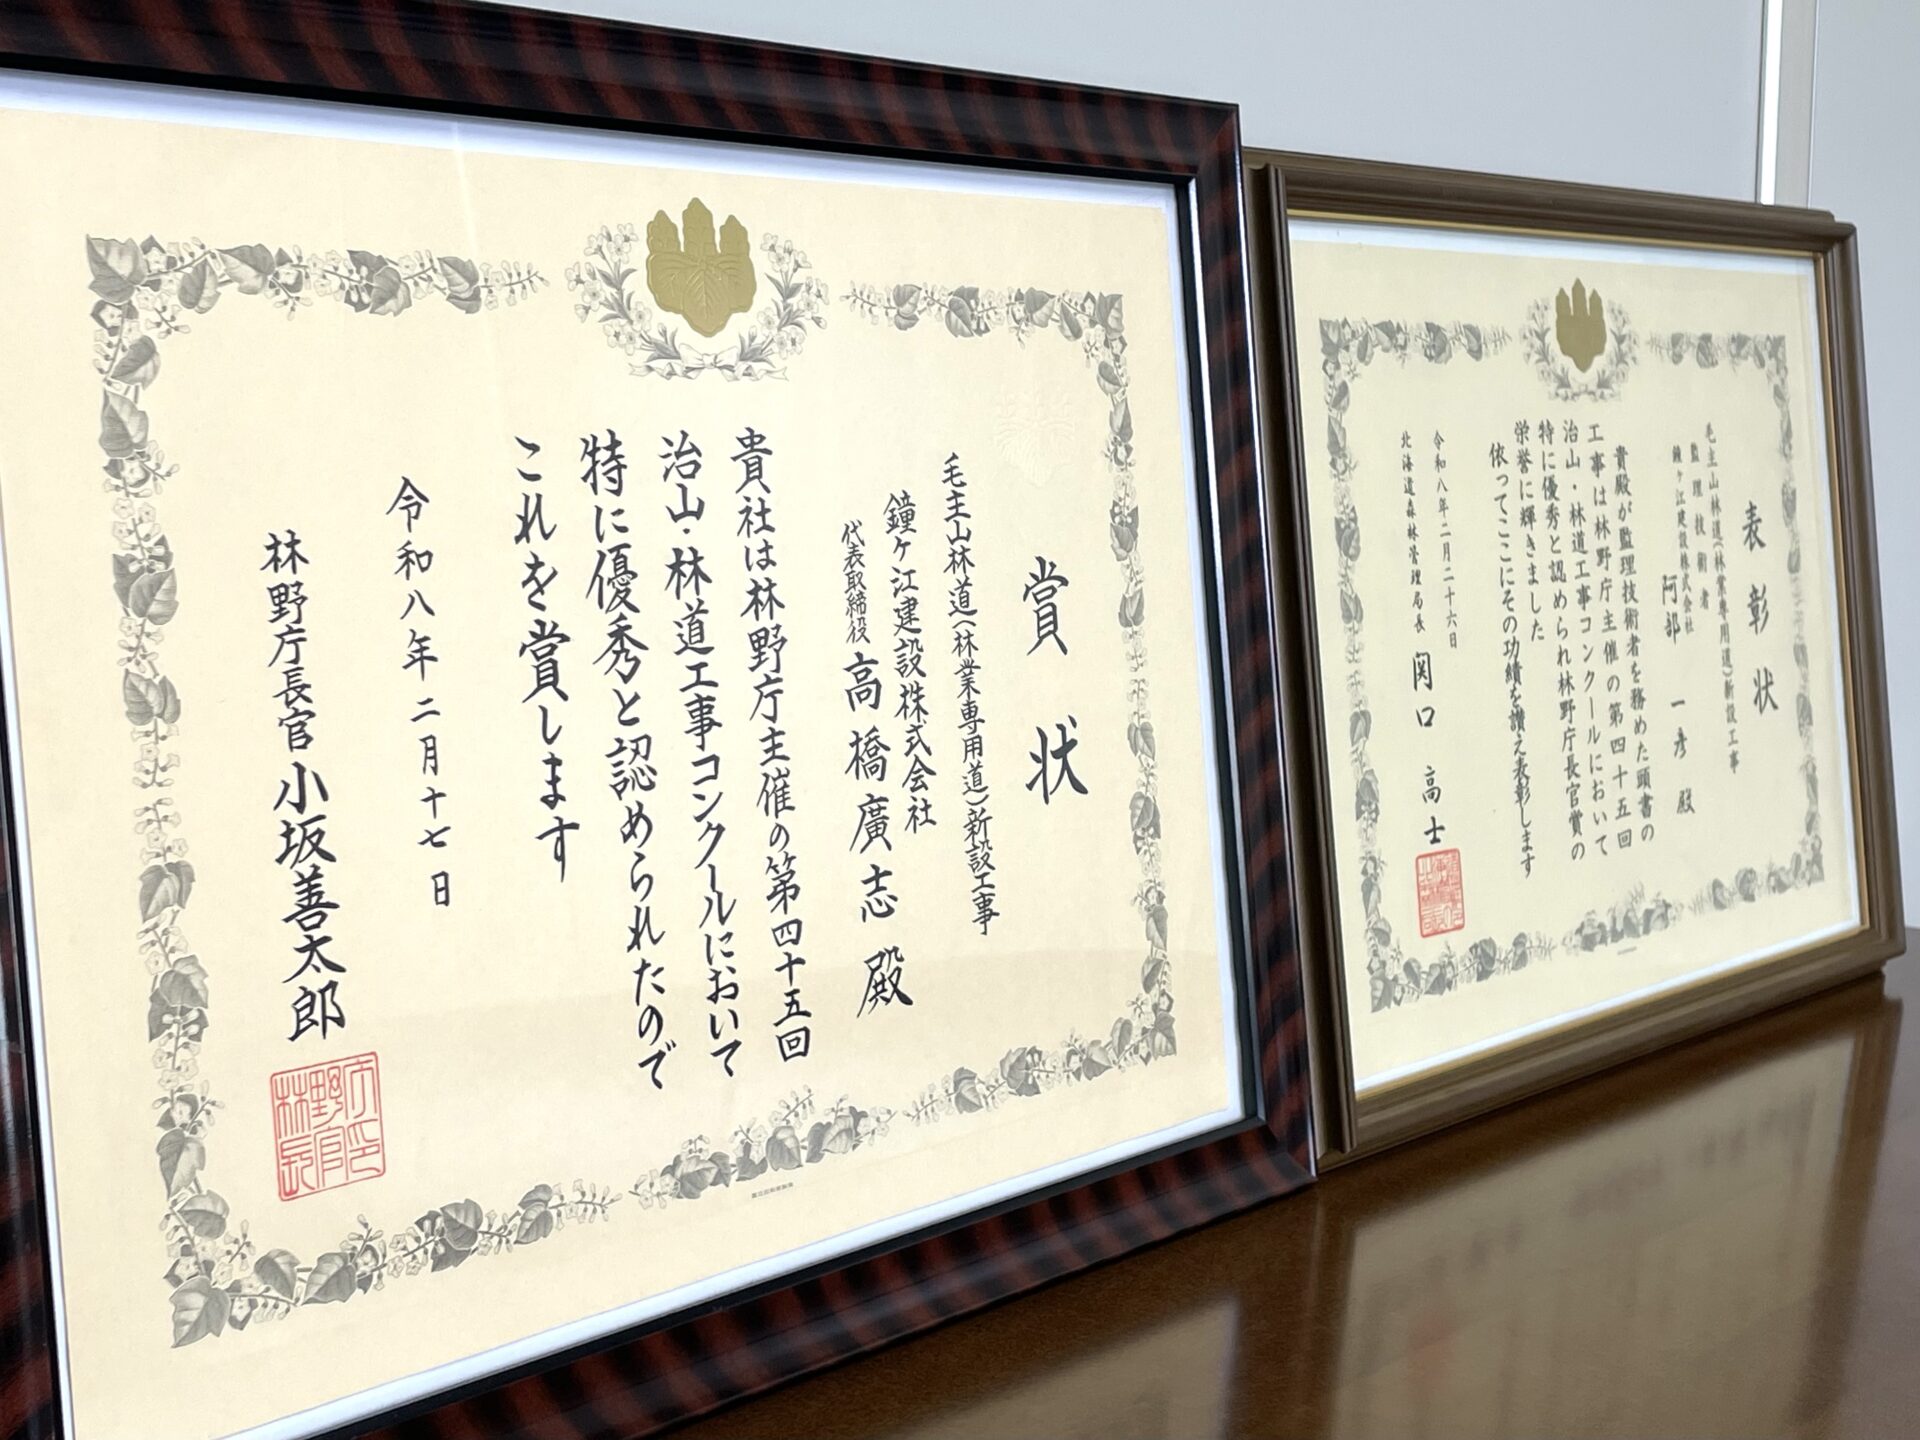 賞状
毛主山林道(林業専用道)新設工事
鐘ヶ江建設株式会社
代表取締役 高橋廣志 殿
貴社は林野庁主催の第四十五回
治山・林道工事コンクールにおいて
特に優秀と認められたので
これを賞します
令和八年二月十七日
林野庁長官 小坂善太郎
表彰状
毛主山林道(林業専用道)新設工事
監理技術者
鐘ヶ江建設株式会社
阿部 一彦 殿
貴殿が監理技術者を務めた頭書の
工事は林野庁主催の第四十五回
治山・林道工事コンクールにおいて
特に優秀と認められ林野庁長官賞の
栄誉に輝きました
依ってここにその功績を讃え表彰します
令和八年二月二十六日
北海道森林管理局長 関口 高士